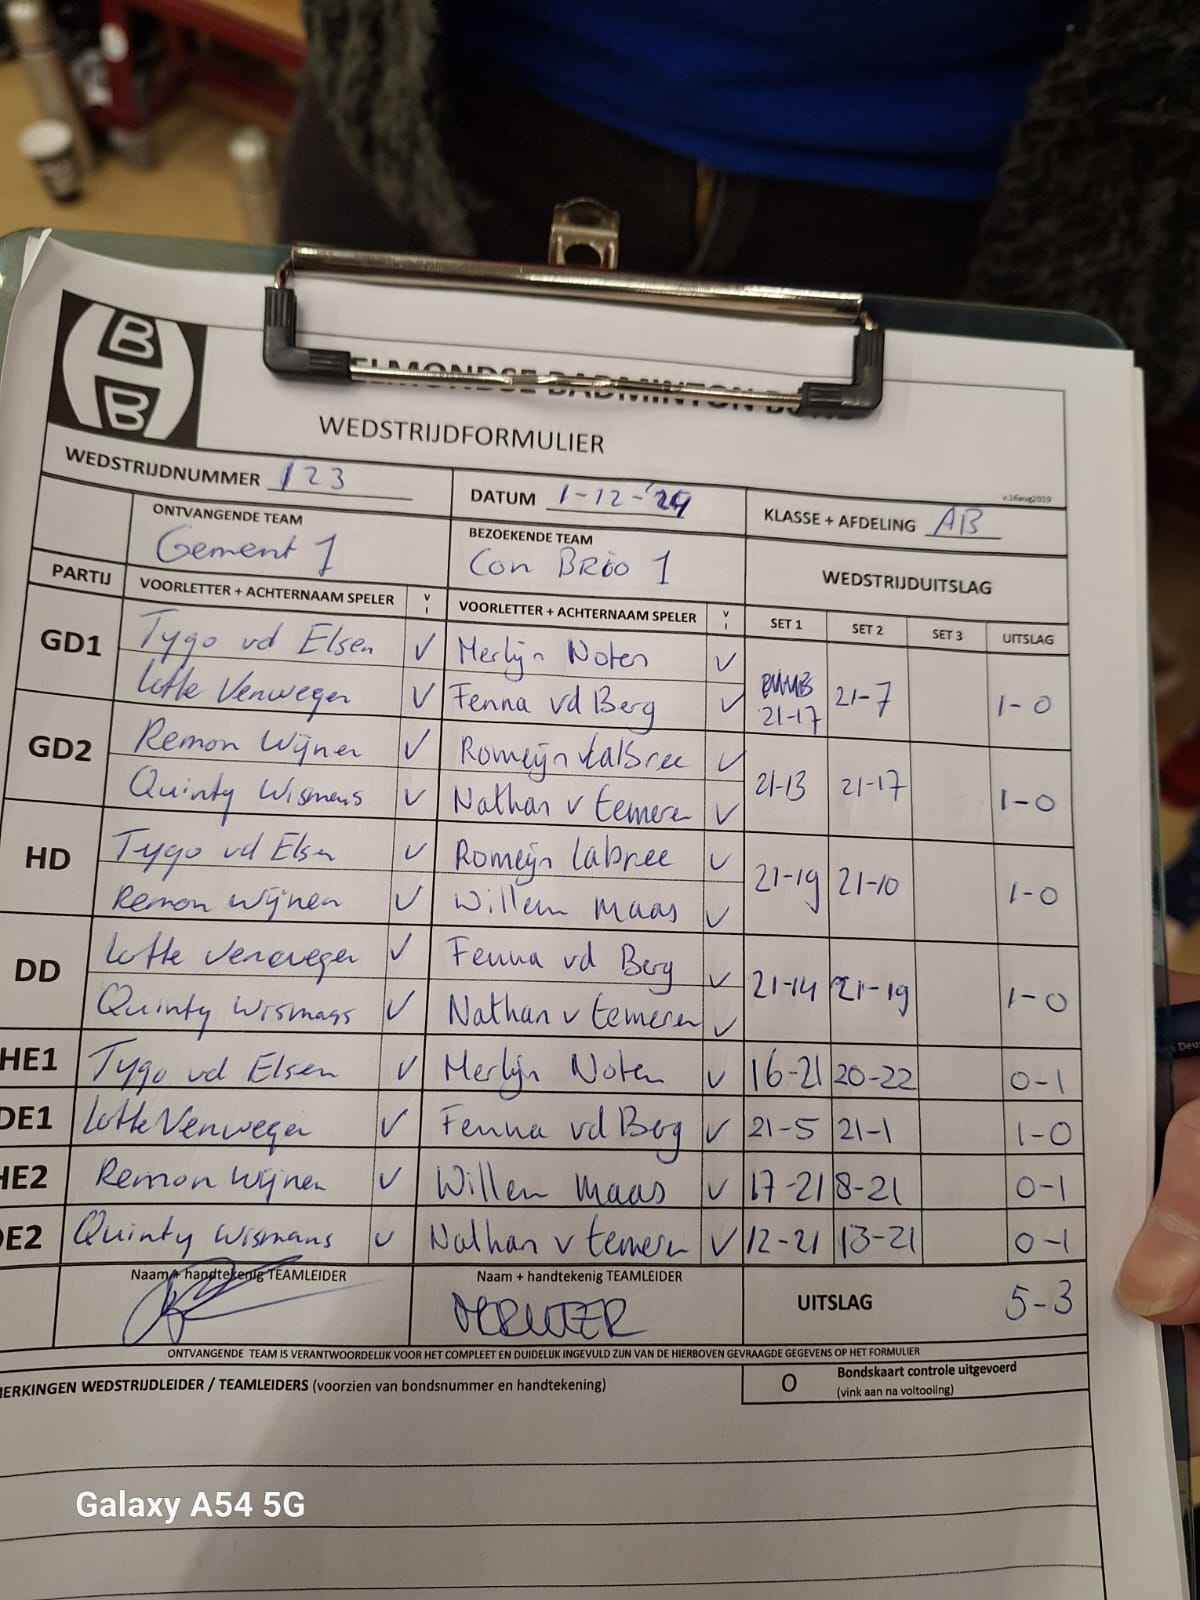 B
B
WEDSTRIJDFORMULIER
v.16aug2019
WEDSTRIJDNUMMER 123 DATUM 1-12-'24 KLASSE + AFDELING AB
ONTVANGENDE TEAM BEZOEKENDE TEAM
Gement 1 Con Brio 1 WEDSTRIJDUITSLAG
PARTIJ VOORLETTER + ACHTERNAAM SPELER V I VOORLETTER + ACHTERNAAM SPELER V I SET 1 SET 2 SET 3 UITSLAG
GD1 Tygo vd Elsen ✓ Merlijn Noten ✓
Lotte Verweger ✓ Fenna vd Berg ✓ 21-17 21-7 1-0
GD2 Remon Wijnen ✓ Romeijn Labree ✓
Quinty Wismans ✓ Nathan v temeren ✓ 21-13 21-17 1-0
HD Tygo vd Elsen ✓ Romeijn labree ✓
Remon Wijnen ✓ Willem Maas ✓ 21-19 21-10 1-0
DD Lotte Verweger ✓ Fenna vd Berg ✓
Quinty Wismans ✓ Nathan v temeren ✓ 21-14 21-19 1-0
HE1 Tygo vd Elsen ✓ Merlijn Noten ✓ 16-21 20-22 0-1
DE1 Lotte Verweger ✓ Fenna vd Berg ✓ 21-5 21-1 1-0
HE2 Remon Wijnen ✓ Willem Maas ✓ 17-21 8-21 0-1
DE2 Quinty Wismans ✓ Nathan v temeren ✓ 12-21 13-21 0-1
Naam + handtekenig TEAMLEIDER Naam + handtekening TEAMLEIDER UITSLAG 5-3
ONTVANGENDE TEAM IS VERANTWOORDELIJK VOOR HET COMPLEET EN DUIDELIJK INGEVULD ZIJN VAN DE HIERBOVEN GEVRAAGDE GEGEVENS OP HET FORMULIER
MERKINGEN WEDSTRIJDLEIDER / TEAMLEIDERS (voorzien van bondsnummer en handtekening) O Bondskaart controle uitgevoerd
(vink aan na voltooling)
Galaxy A54 5G